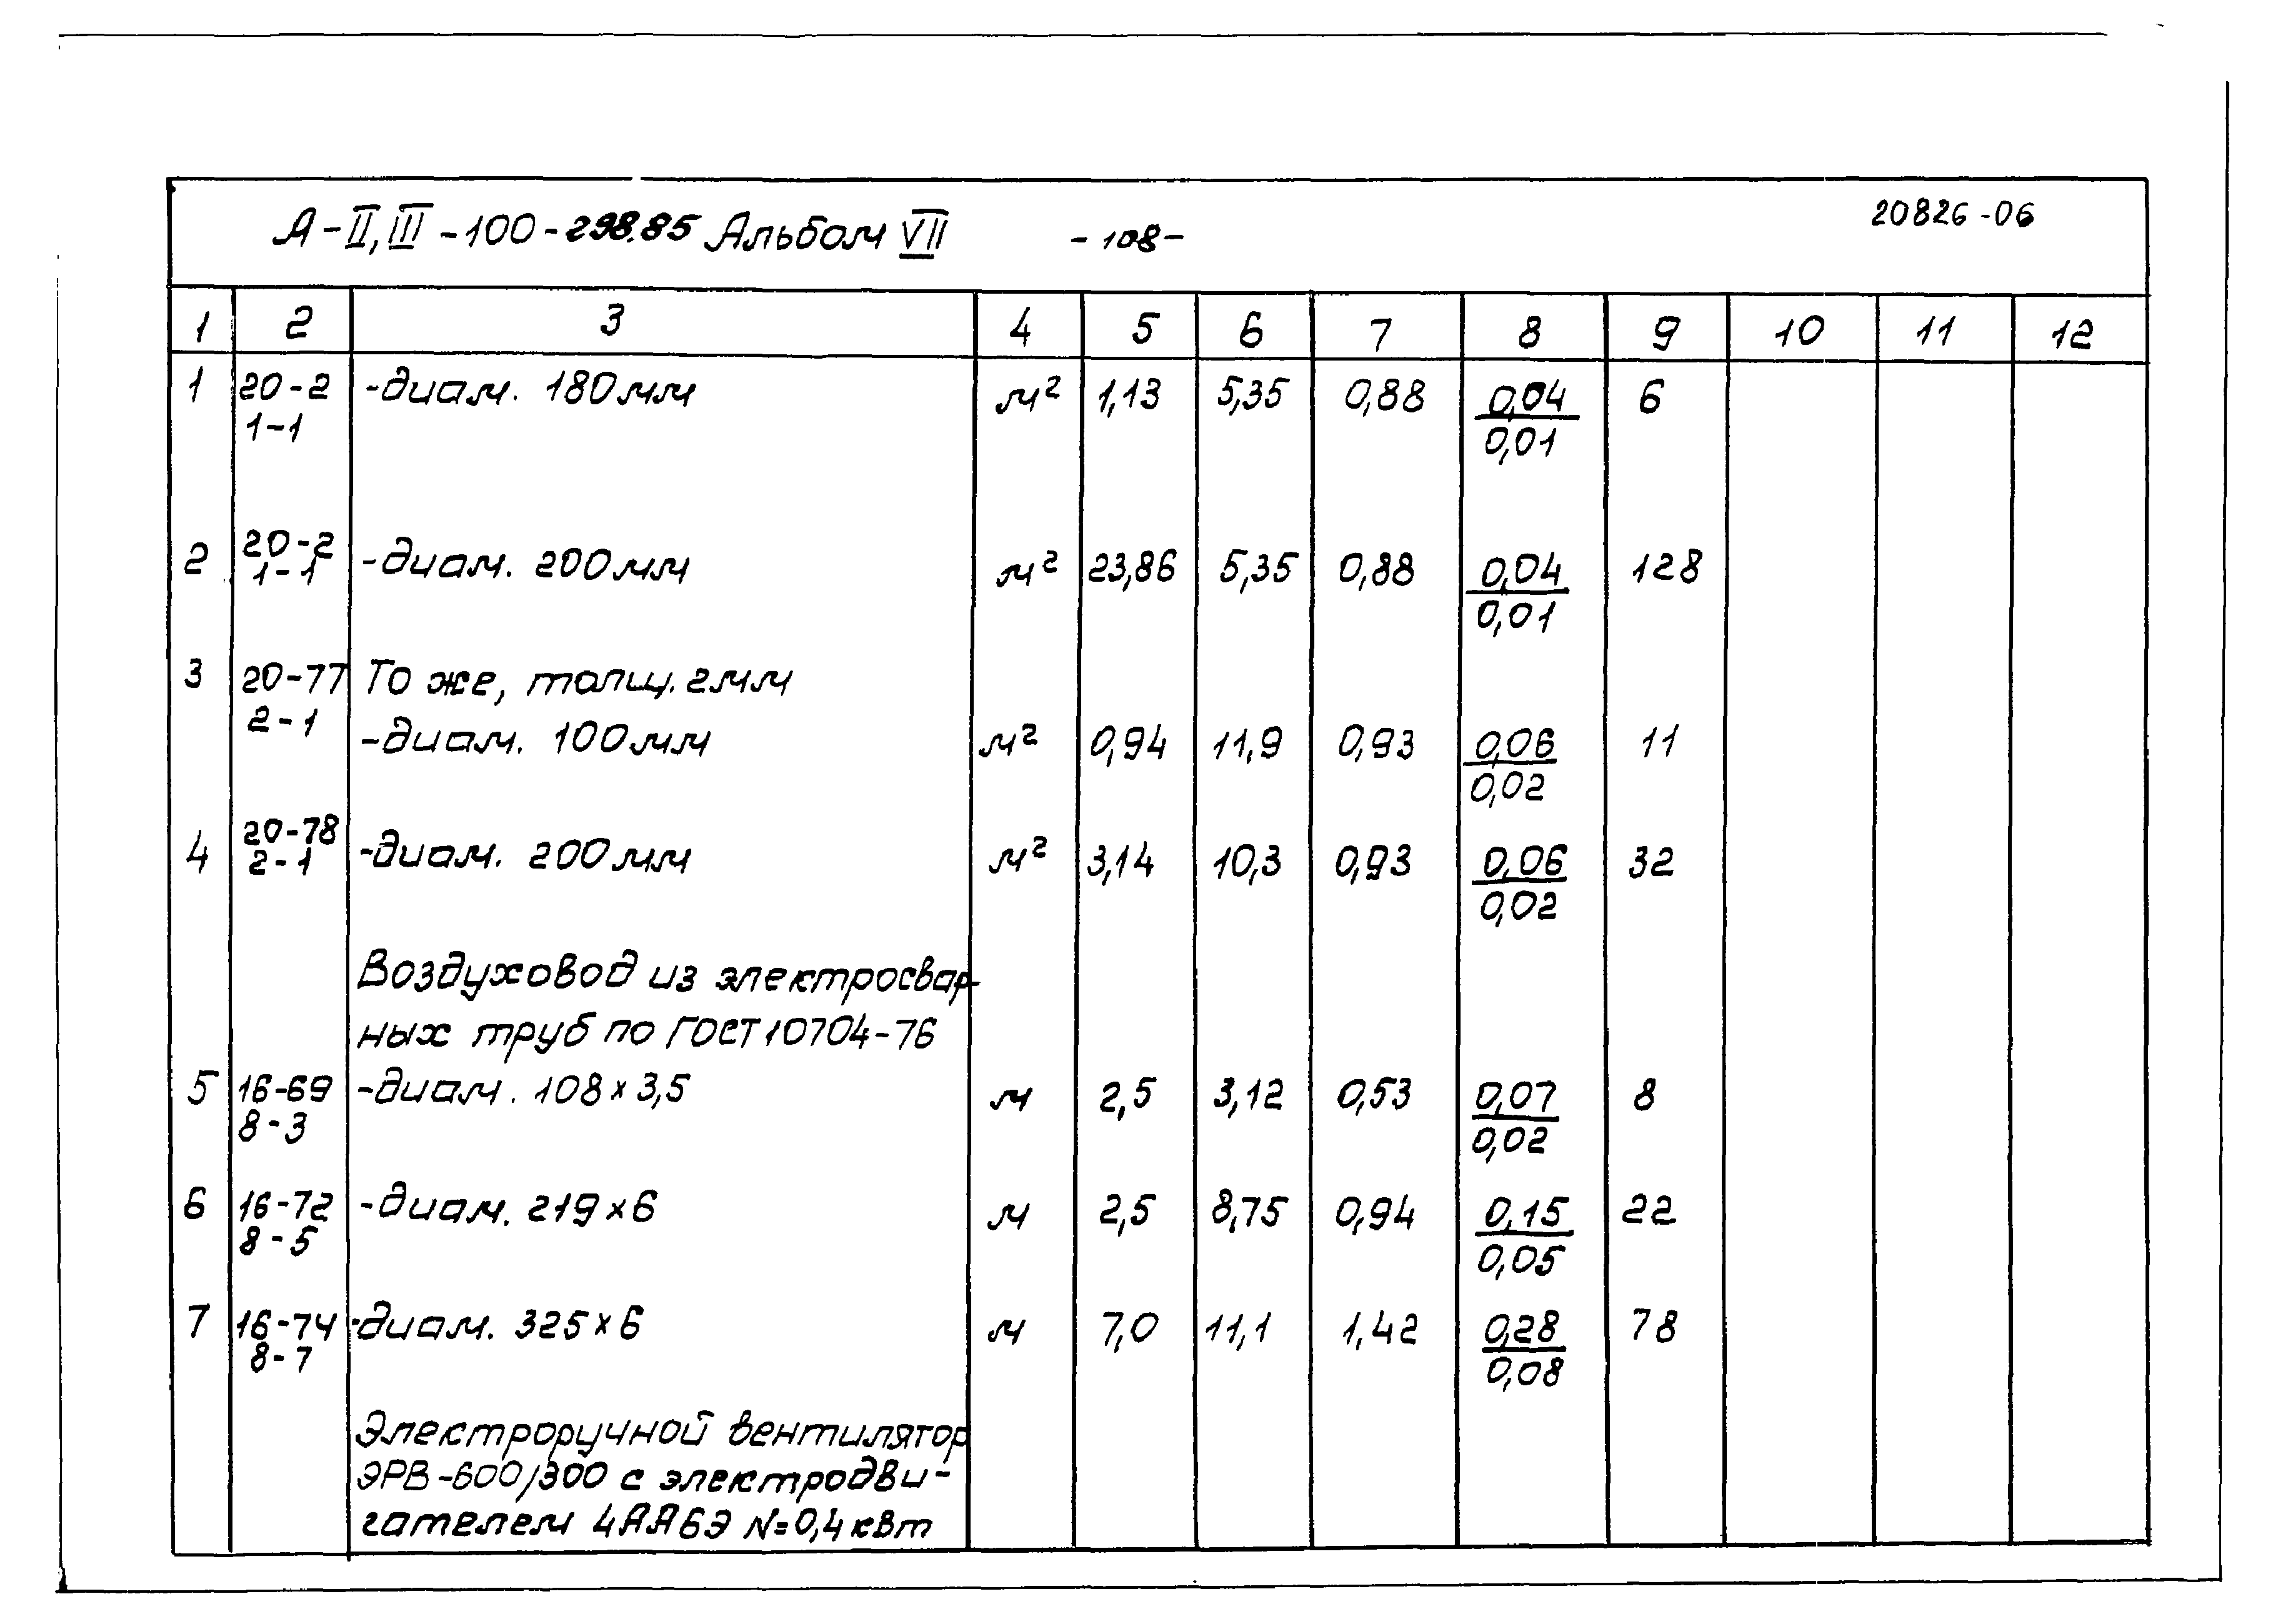 А-II, III-100-298.85 Альбом VII -108- 20826-06
1 2 3 4 5 6 7 8 9 10 11 12
1 20-2 -диам. 180мм м² 1,13 5,35 0,88 0,04 6
1-1 0,01
2 20-2 -диам. 200мм м² 23,86 5,35 0,88 0,04 128
1-1 0,01
3 20-77 То же, толщ. 2мм
2-1 -диам. 100мм м² 0,94 11,9 0,93 0,06 11
0,02
4 20-78 -диам. 200мм м² 3,14 10,3 0,93 0,06 32
2-1 0,02
Воздуховод из электросвар-
ных труб по ГОСТ 10704-76
5 16-69 -диам. 108×3,5 м 2,5 3,12 0,53 0,07 8
8-3 0,02
6 16-72 -диам. 219×6 м 2,5 8,75 0,94 0,15 22
8-5 0,05
7 16-74 -диам. 325×6 м 7,0 11,1 1,42 0,28 78
8-7 0,08
Электроручной вентилятор
ЭРВ-600/300 с электродви-
гателем 4АА6Э N=0,4квт